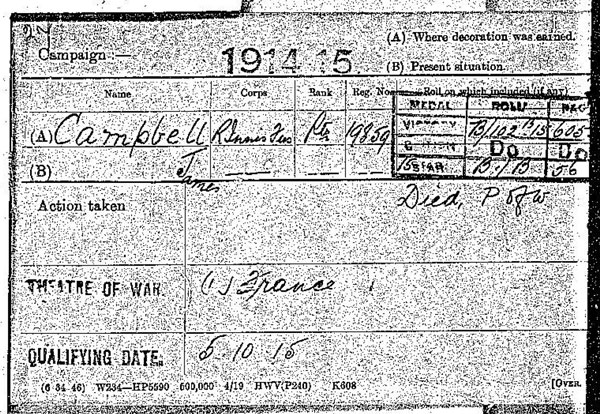 Campaign :— 1914 15
(A) Where decoration was earned.
(B) Present situation.
Name Corps Rank Reg. No. Roll on which included (if any)
MEDAL ROLL PAGE
(A) Campbell R Innis Fus Pte 19859
VICTORY B/102 B15 605
BRITISH Do Do
(B) James
15 STAR B/ B 56
Action taken
Died, P of W
THEATRE OF WAR. (1) France
QUALIFYING DATE. 5.10.15
(6 34 46) W234—HP5590 600,000 4/19 HWV(P240) K608 [OVER.